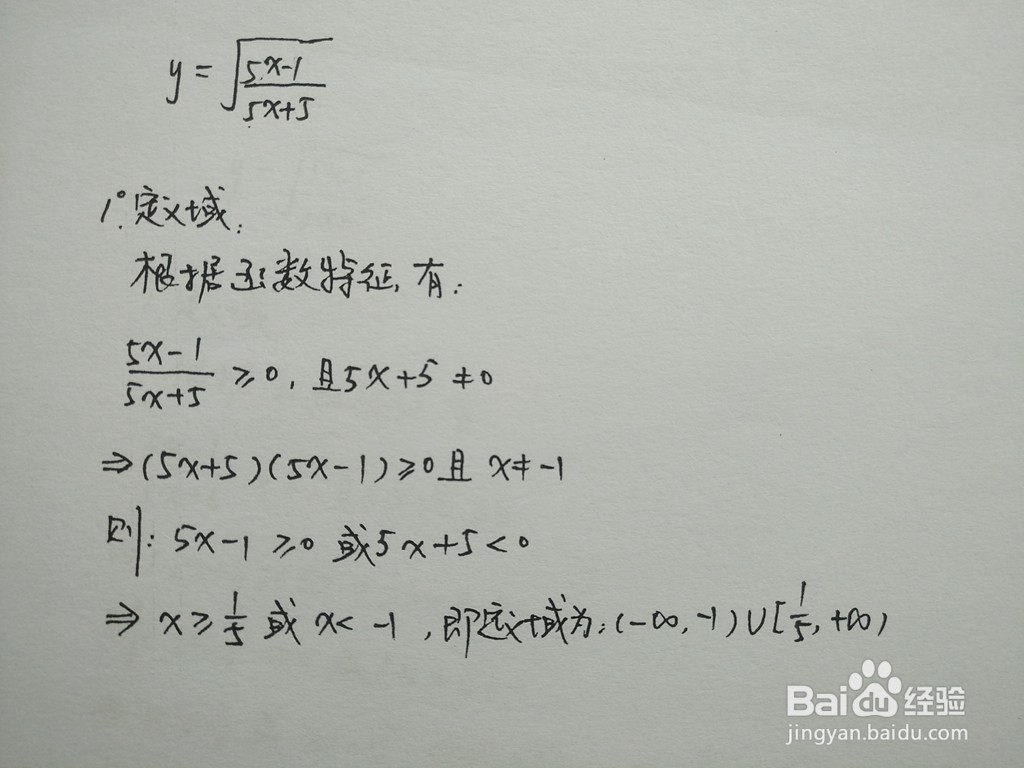 y = √((5x-1)/(5x+5))
1°. 定义域:
根据函数特征, 有:
(5x-1)/(5x+5) ≥ 0, 且 5x+5 ≠ 0
⇒ (5x+5)(5x-1) ≥ 0 且 x ≠ -1
则: 5x-1 ≥ 0 或 5x+5 < 0
⇒ x ≥ 1/5 或 x < -1, 即定义域为: (-∞, -1) ∪ [1/5, +∞)
Baidu 经验
jingyan.baidu.com